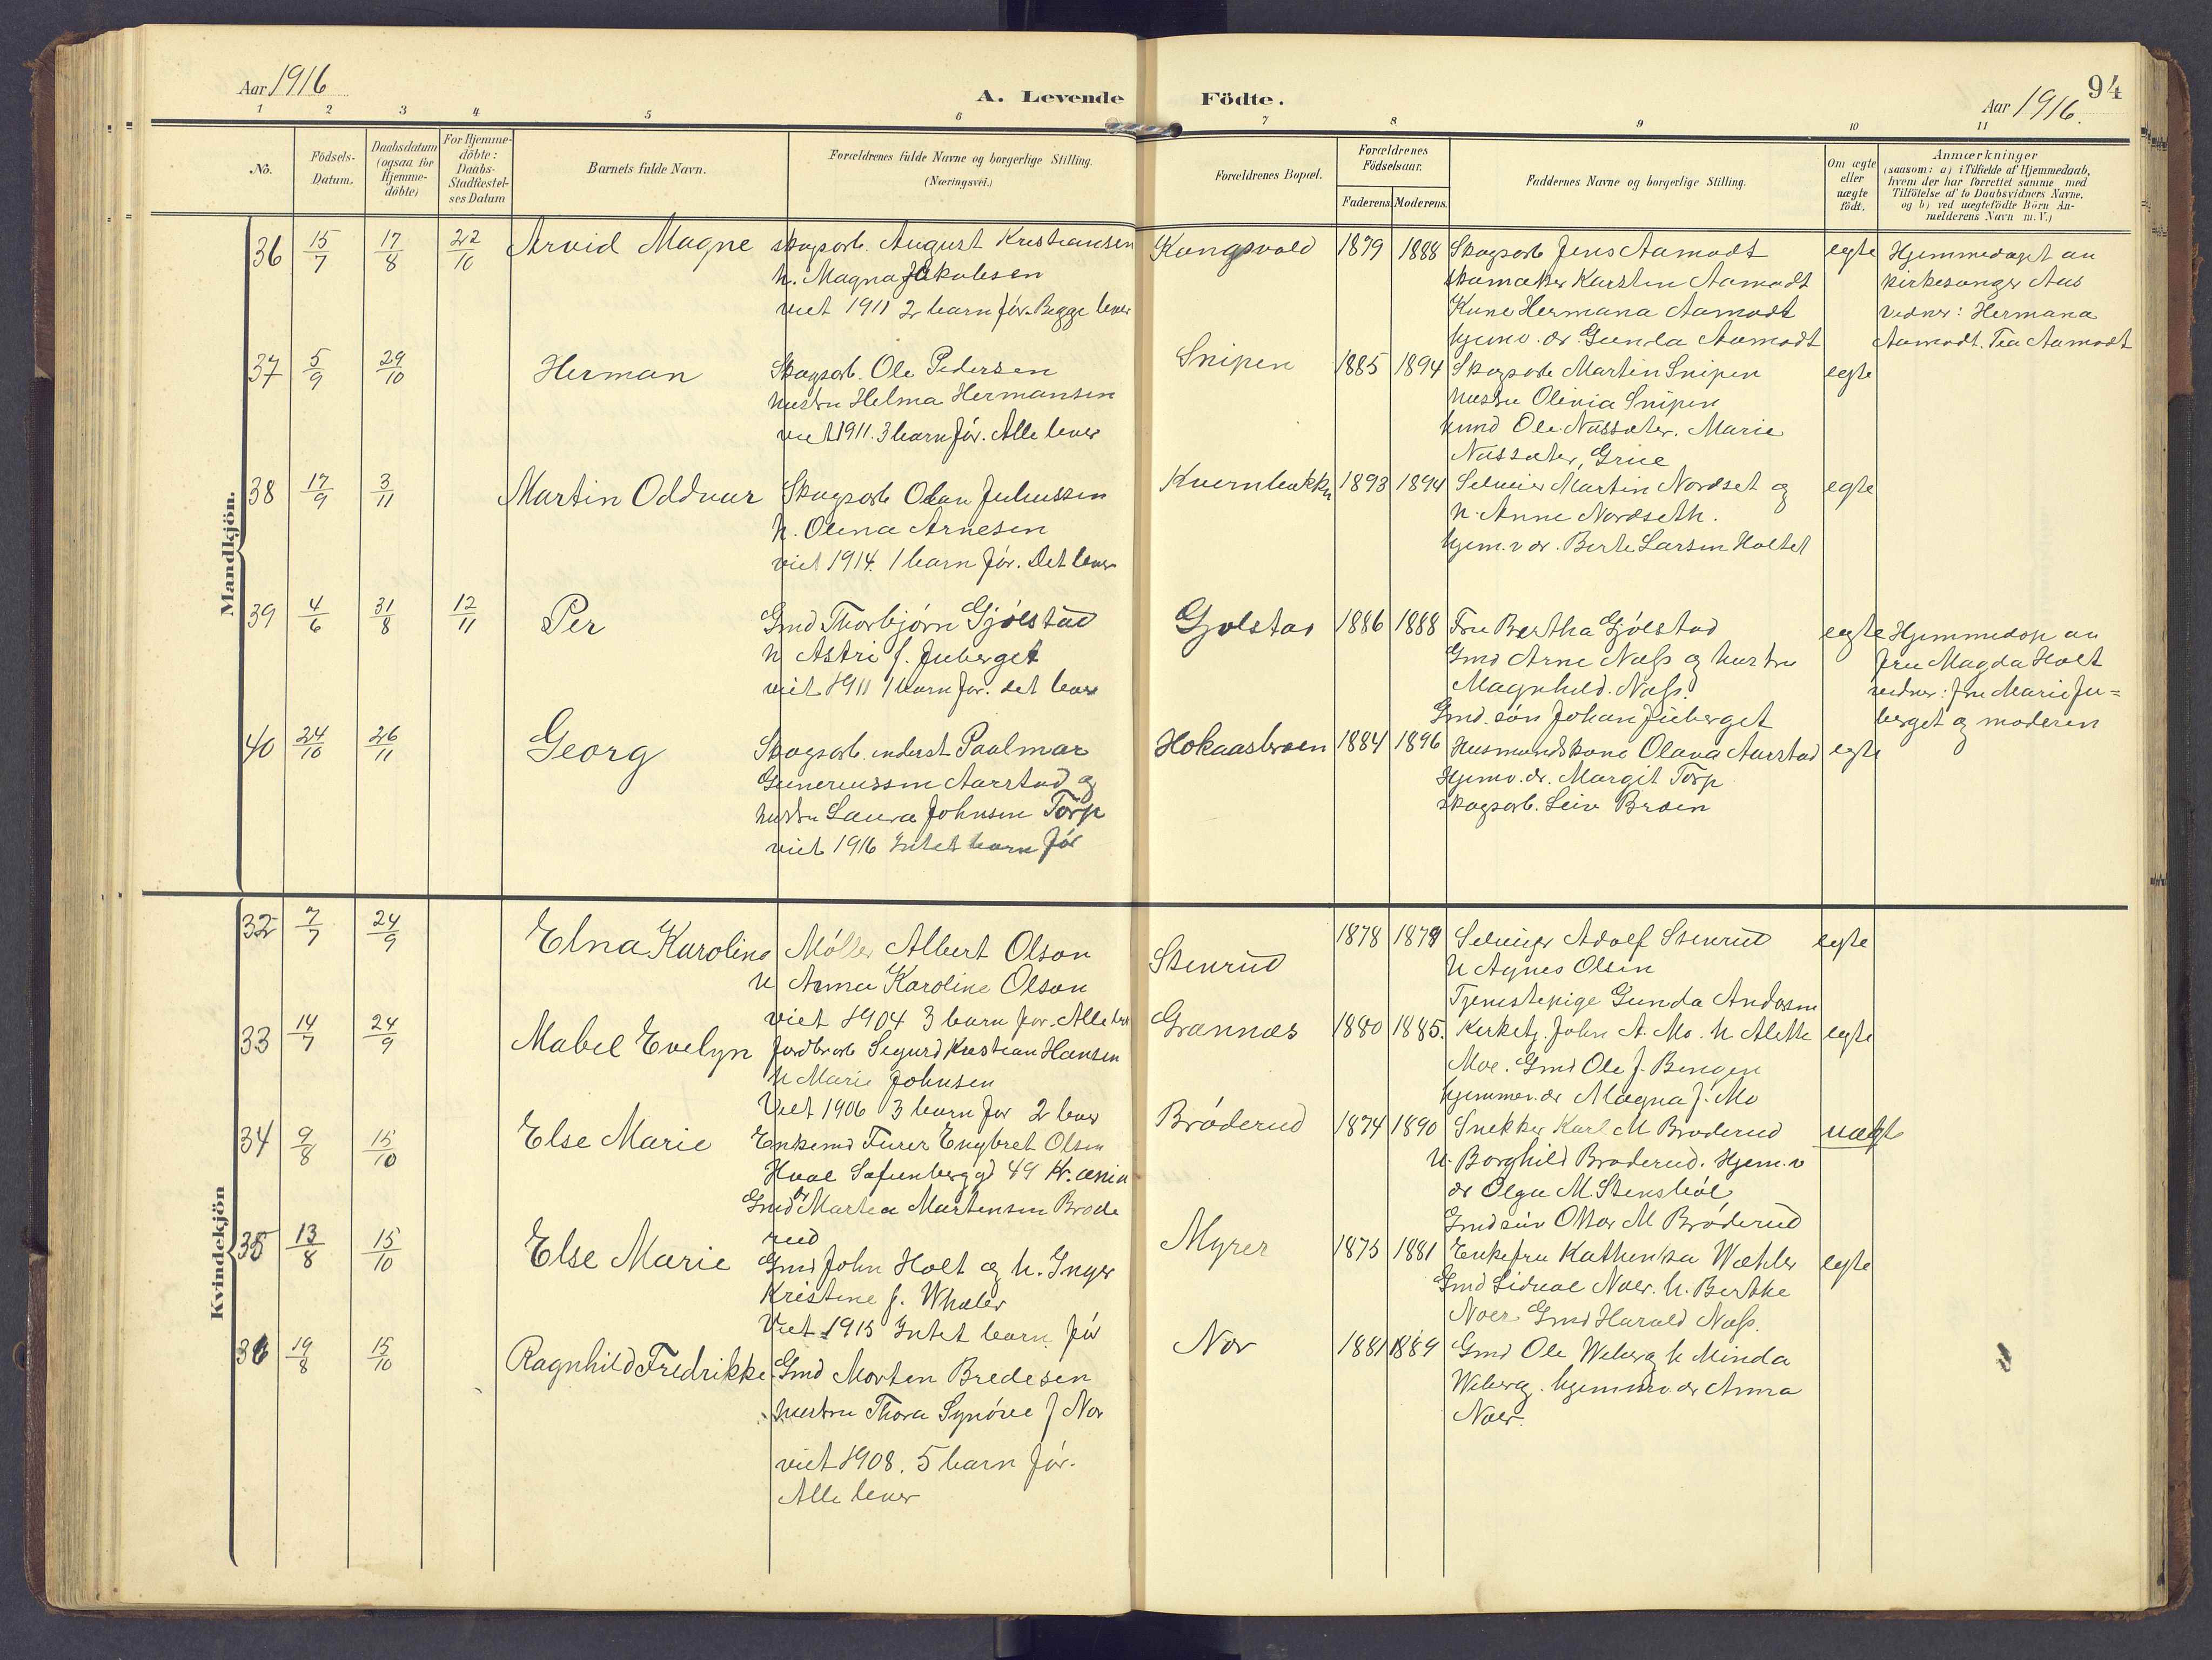 Aar 1916
A. Levende Födte.
Aar 1916.
94
1 2 3 4 5 6 7 8 9 10 11
No.
Födsels-Datum.
Daabsdatum (ogsaa for Hjemme-döbte)
For Hjemme-döbte: Daabs-Stadfæstel-ses Datum
Barnets fulde Navn.
Forældrenes fulde Navne og borgerlige Stilling.
(Næringsvei.)
Forældrenes Bopæl.
Forældrenes Födselsaar.
Faderens. Moderens.
Faddernes Navne og borgerlige Stilling.
Om ægte eller uægte födt.
Anmærkninger
(saasom: a) i Tilfælde af Hjemmedaab,
hvem der har forrettet samme med
Tilföielse af to Daabsvidners Navne.
og b) ved uægtefödte Börn An-
melderens Navn m. V.)
Mandkjön.
36 15/7 17/8 22/10 Arvid Magne
skogsarb. August Kristiansen
h. Magna Jakobsen
viet 1911 2 barn før. Begge lever
Kongsvold 1879 1888
Skogsarb Jens Aamodt
skomaker Karsten Aamodt
Kone Hermana Aamodt
hjemv. dr. Gunda Aamodt
egte
Hjemmedøpt av
kirkesanger Aas
vidner: Hermana
Aamodt. Tea Aamodt
37 5/9 29/10 Herman
Skogsarb. Ole Pedersen
hustru Helma Hermansen
viet 1911. 3 barn før. Alle lever
Snipen 1885 1894
Skogsarb Martin Snipen
hustru Olivia Snipen
kmd Ole Nassæter. Marie
Nassæter, Grue
egte
38 17/9 3/11 Martin Oddvar
Skogsarb Olav Juliussen
h. Olena Arnesen
viet 1914. 1 barn før. Det lever
Kvernbakken 1893 1894
Seleier Martin Nordset og
h. Anne Nordseth.
hjem.v dr. Berte Larsen Holtet
egte
39 4/6 31/8 12/11 Per
Gmd Thorbjørn Gjølstad
h Astri f. Juberget
viet 1911 1 barn før. det lever
Gjølstad 1886 1888
Fru Bertha Gjølstad
Gmd Arne Næss og hustru
Magnhild Næss.
Gmd. søn Johan Juberget
egte
Hjemmedøp av
fru Magda Holt
vidner: fru Marie Ju-
berget og moderen
40 24/10 26/11 Georg
Skogsarb. inderst Paalmar
Gunerussen Aarstad og
hustru Laura Johnsen Torp
viet 1916 Intet barn før
Hokaasbroen 1884 1896
Husmandskone Olava Aarstad
Hjemv. dr. Margit Torp
skogsarb. Leiv Broen
egte
Kvindekjön
32 7/7 24/9 Elna Karoline
Møller Albert Olson
h Anna Karoline Olson
viet 1904 3 barn før. Alle lev
Stenrud 1878 1879
Seleier Adolf Stenrud
h Agnes Olsen
Tjenestepige Gunda Andersen
egte
33 14/7 24/9 Mabel Evelyn
Jordbrarb Sigurd Kristian Hansen
h Marie Johnsen
Viet 1906 3 barn før 2 lever
Grannæs 1880 1885.
Kirketj. John A. Mo. h Alette
Moe. Gmd Ole J. Bengen
hjemmev. dr Magna J. Mo
egte
34 9/8 15/10 Else Marie
Enkemd Furer Engbret Olsen
Hval Sofienberggd 49 Kr.ania
Gmd dr Martea Martensen Brøde
rud
Brøderud 1874 1890
Snekker Karl M Brøderud
h. Borghild Brøderud. Hjem.v
dr Olga M. Stensbøl
Gmdsøn Ottar M Brøderud
uægte
35 13/8 15/10 Else Marie
Gmd John Holt og h. Inger
Kristine f. Wæhler
Viet 1915 Intet barn før
Myrer 1875 1881
Enkefru Kathinka Wæhler
Gmd Sidval Noer. h. Berthe
Noer Gmd Harald Næss.
egte
36 19/8 15/10 Ragnhild Fredrikke
Gmd Morten Bredesen
hustru Thora Synøve f Nor
viet 1908. 5 barn før.
Alle lever
Nor 1881 1889
Gmd Ole Weberg h Minda
Weberg. hjemmev. dr Anna
Noer.